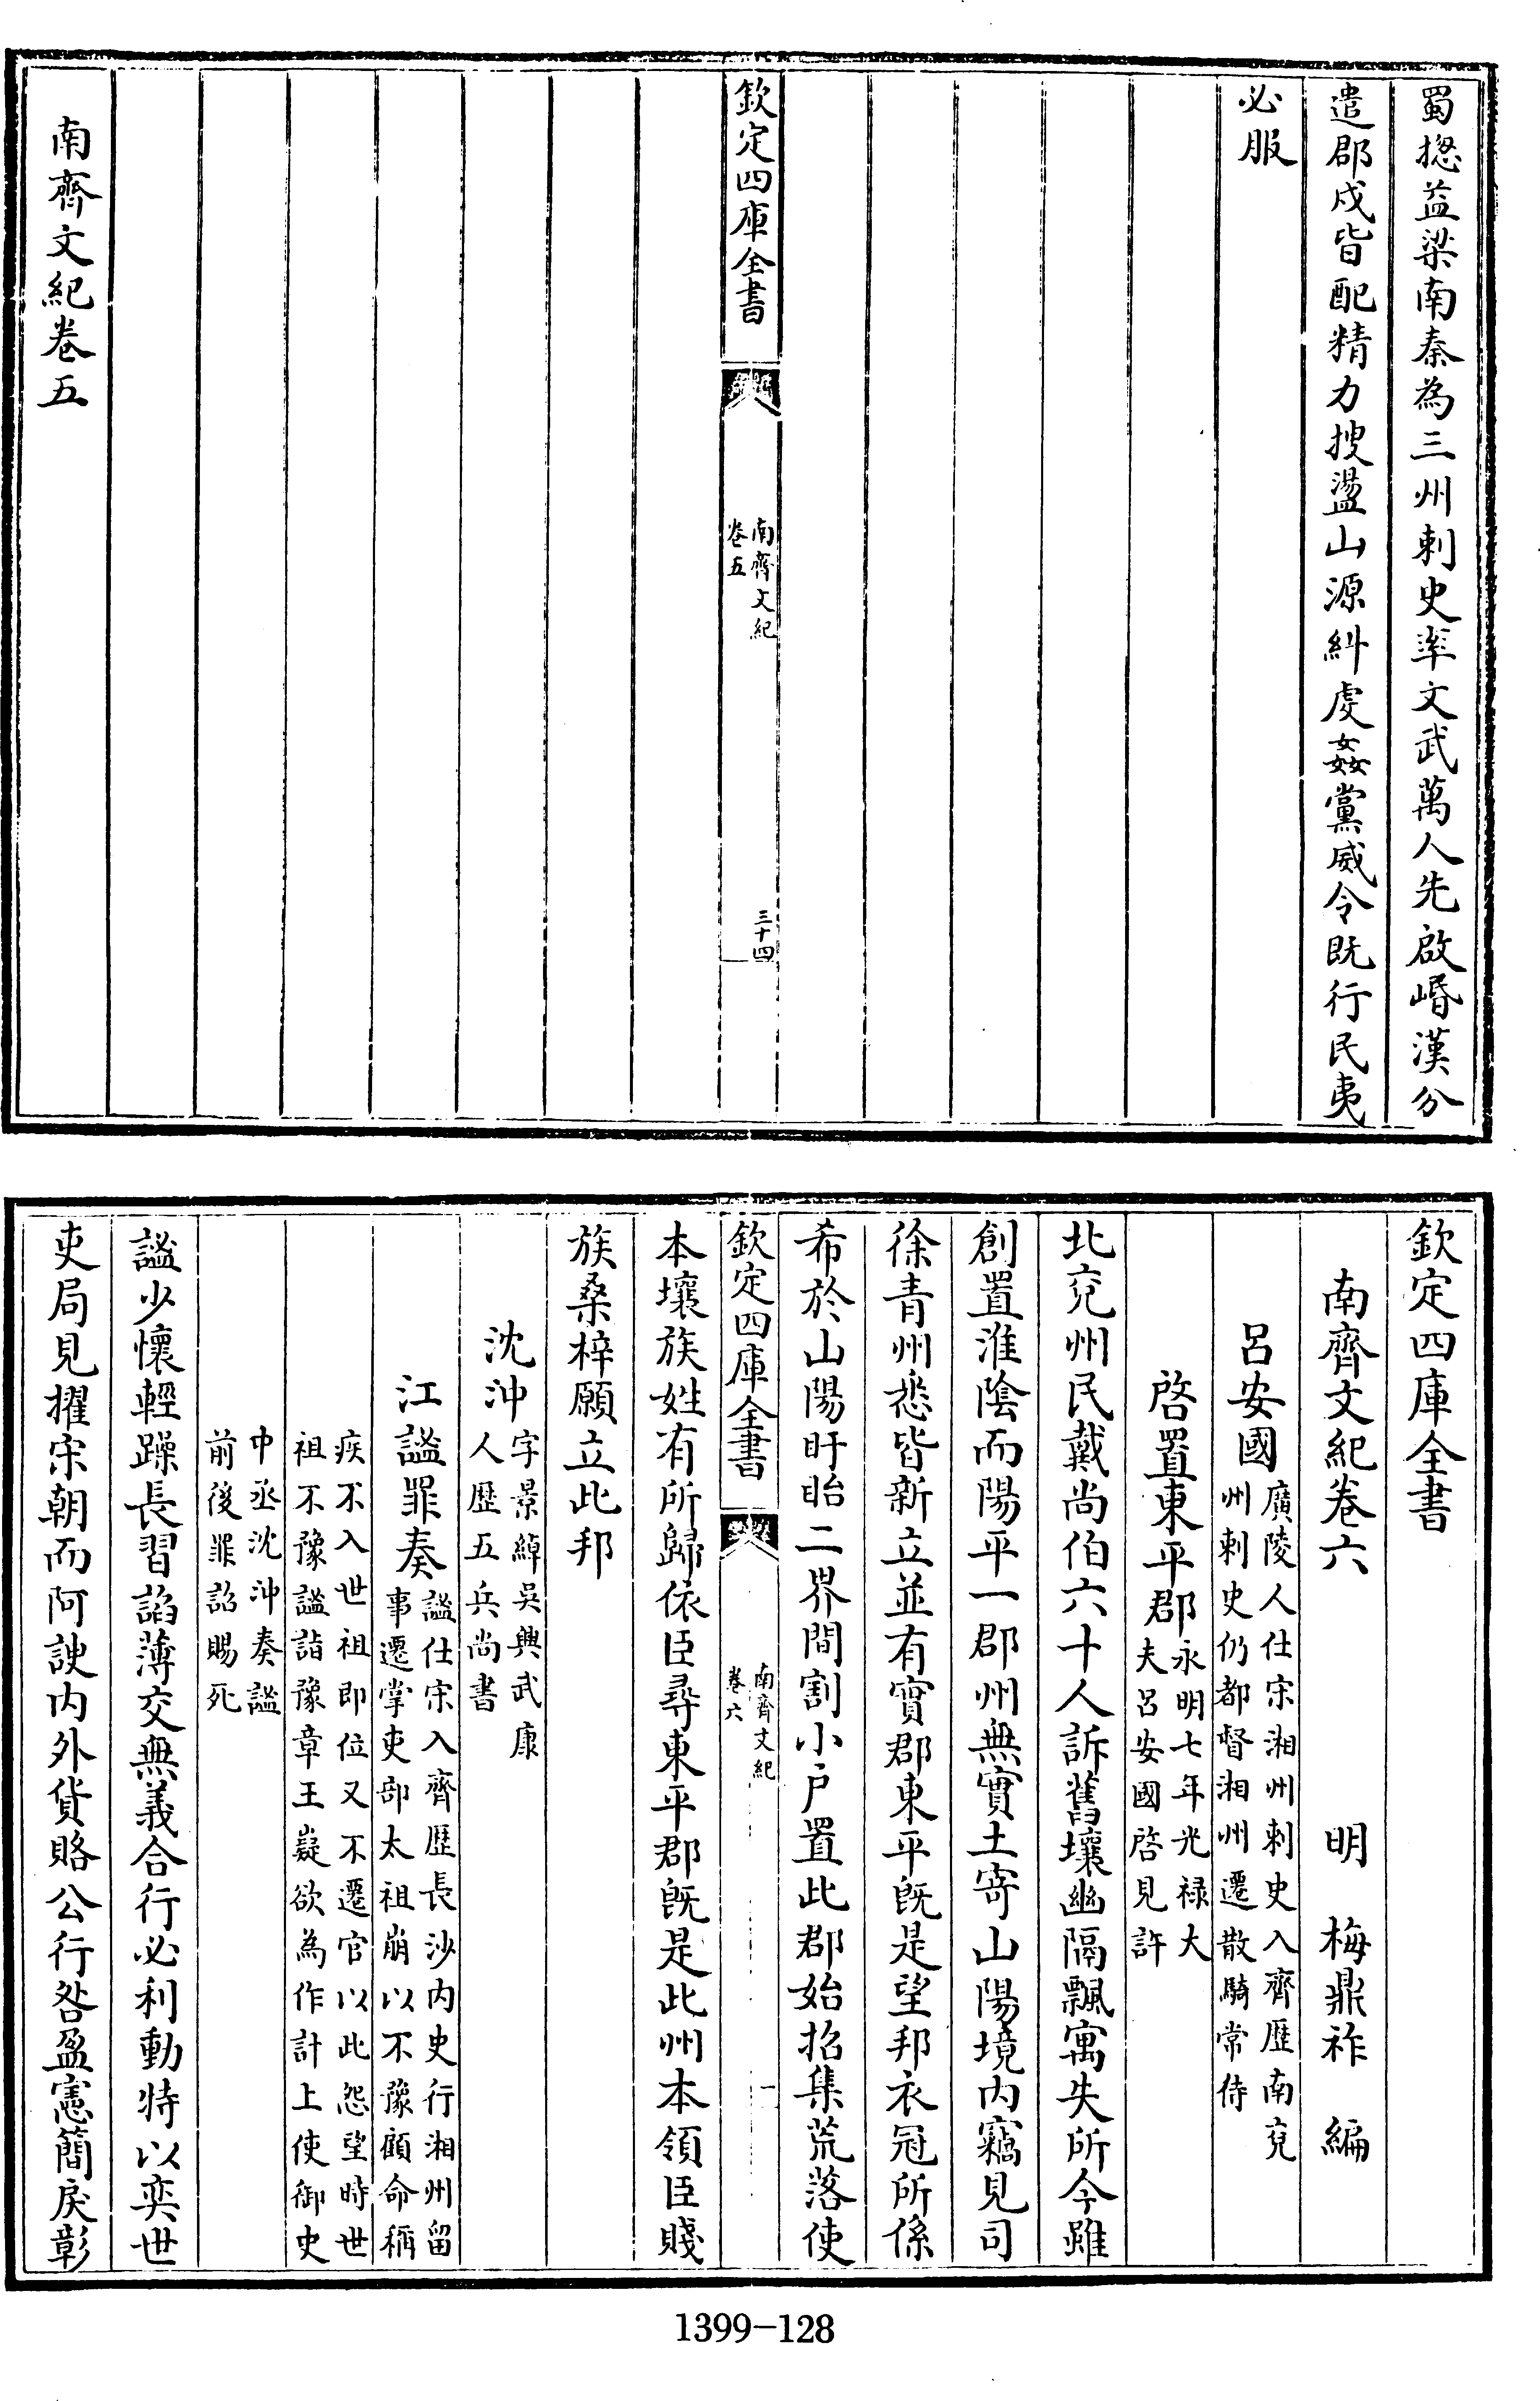 蜀揔益梁南秦為三州刺史率文武萬人先啟㟭漢分
遣郡戍皆配精力搜盪山源糾䖍姦黨威令既行民夷
必服
欽定四庫全書
南齊文紀
卷五
三十四
南齊文紀卷五
欽定四庫全書
南齊文紀卷六
明 梅鼎祚 編
呂安國
廣陵人仕宋湘州刺史入齊歴南兖
州刺史仍都督湘州遷散騎常侍
啓置東平郡
永明七年光禄大
夫呂安國啓見許
北兖州民戴尚伯六十人訴舊壤幽隔飄寓失所今雖
創置淮陰而陽平一郡州無實土寄山陽境内竊見司
徐青州悉皆新立並有實郡東平既是望邦衣冠所係
希於山陽盱眙二界間割小户置此郡始招集荒落使
欽定四庫全書
南齊文紀
卷六
一
本壤族姓有所歸依臣尋東平郡既是此州本領臣賤
族桑梓願立此邦
沈沖
字景綽吳興武康
人歴五兵尚書
江謐罪奏
謐仕宋入齊歴長沙内史行湘州留
事遷掌吏部太祖崩以不豫顧命稱
疾不入世祖即位又不遷官以此怨望時世
祖不豫謐詣豫章王嶷欲為作計上使御史
中丞沈沖奏謐
前後罪詔賜死
謐少懷輕躁長習諂薄交無義合行必利動特以奕世
吏局見擢宋朝而阿諛内外貨賂公行咎盈憲簡戾彰
1399-128